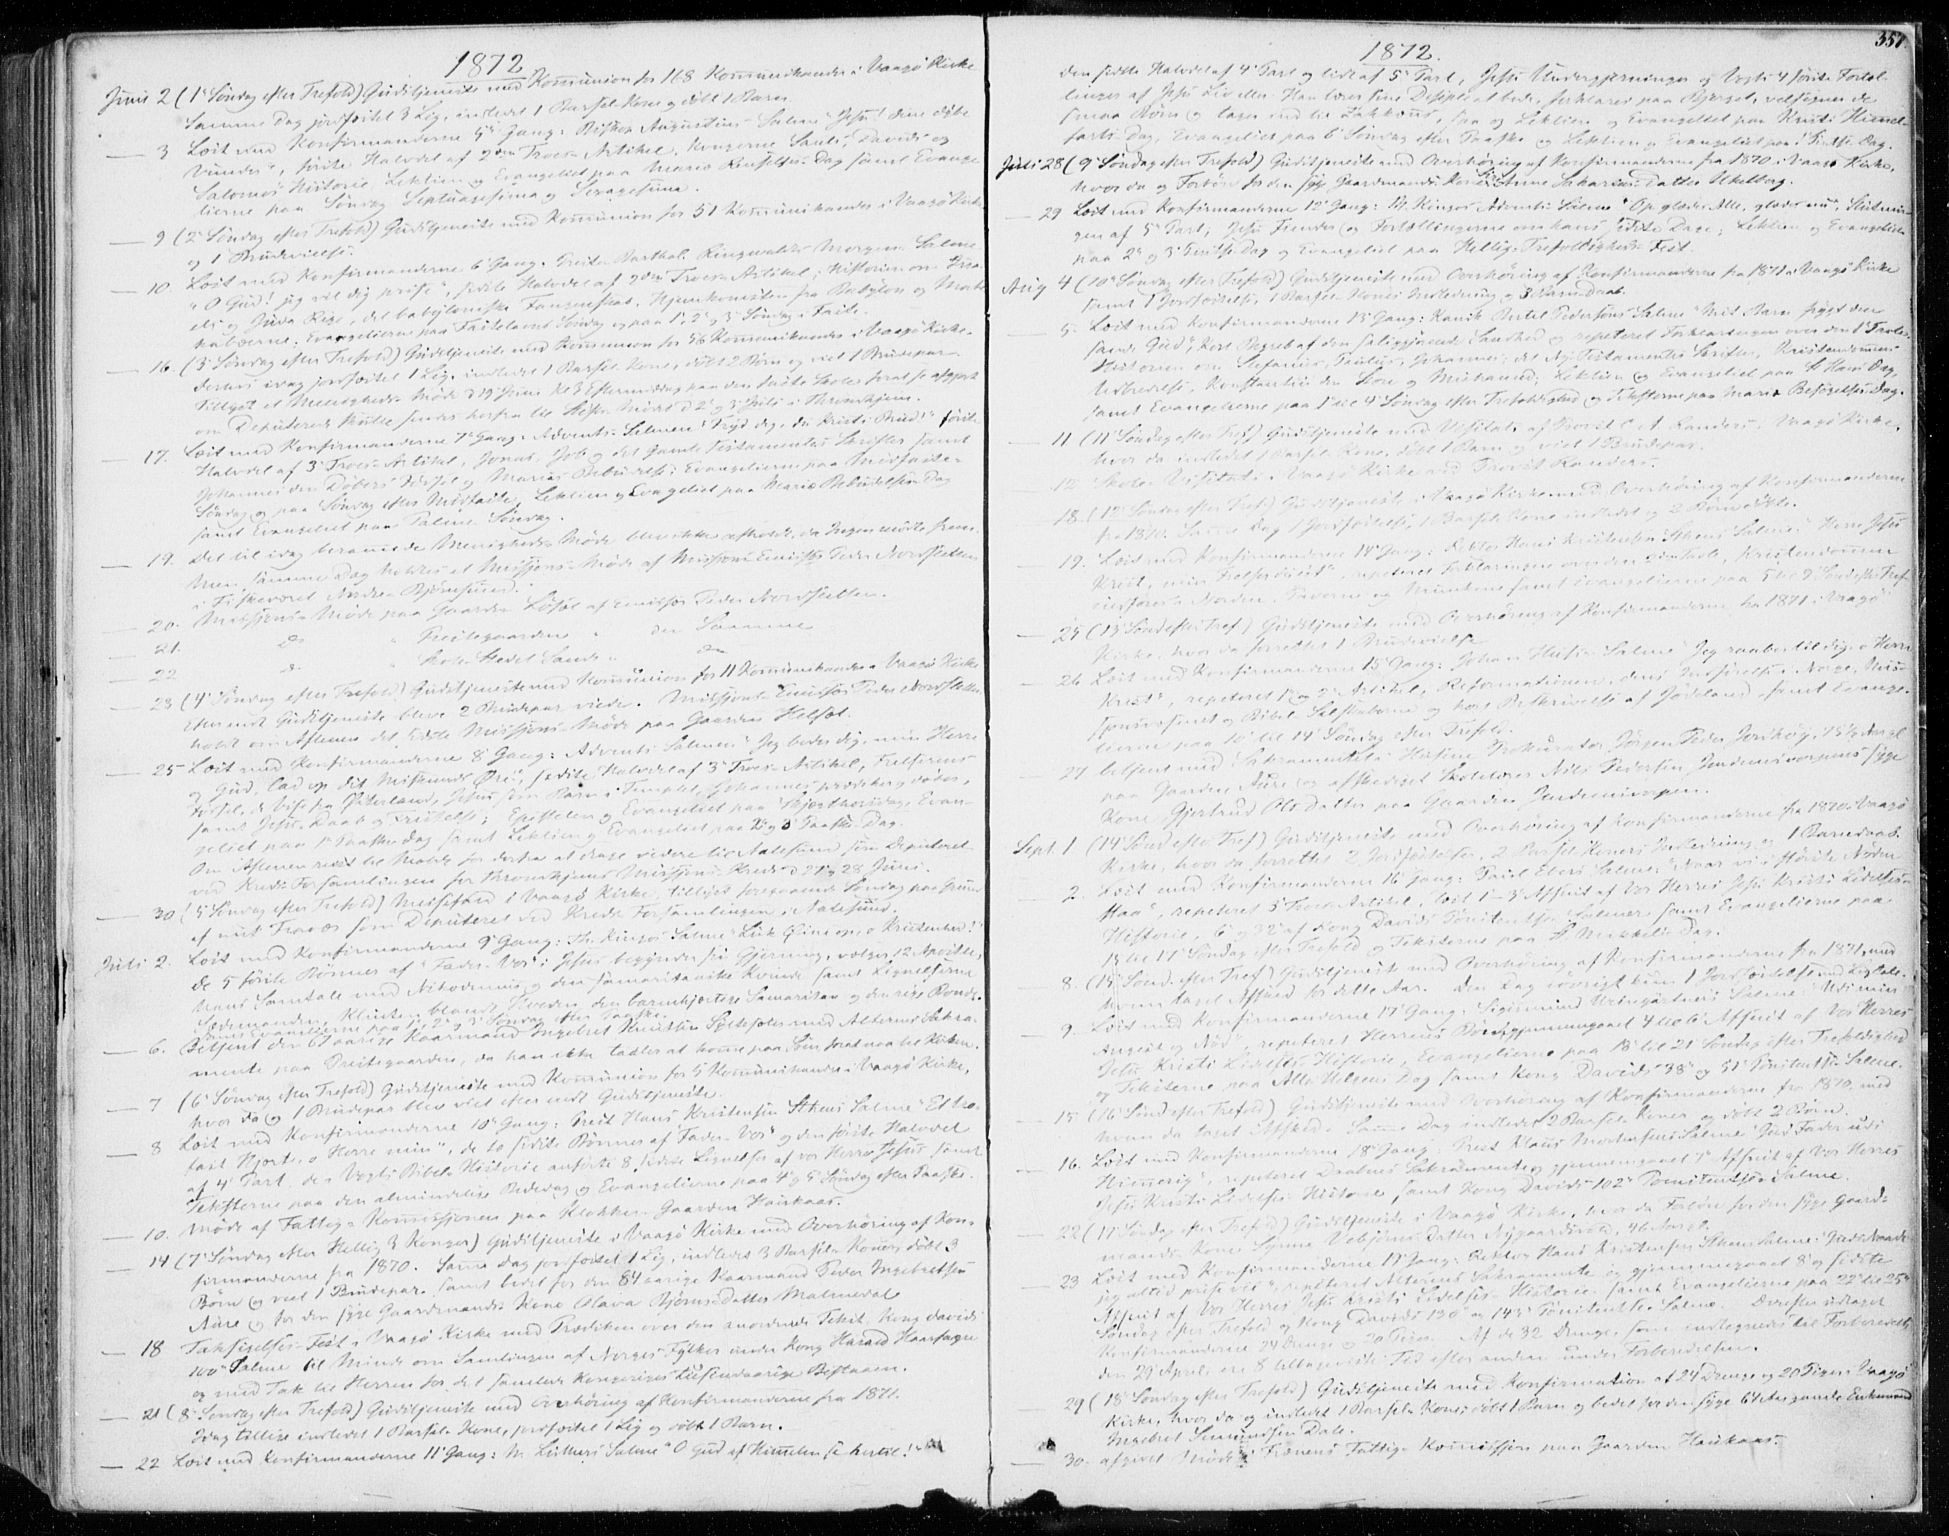 1872
Juni 2 (1e Søndag efter Trefold) Gudstjeneste med Kommunion for 168 Kommunikanter i Vaagø Kirke
Samme Dag jordfæstet 3 Lig, indledet 1 Barsel-Kone og døbt 1 Barn.
— 3 Læst med Konfirmanderne 5te Gang: Biskop Augustins Salme "Jesu! dine dybe
Vunder", første Halvdel af 2den Troes-Artikel, Kongerne Sauls, Davids og
Salomos Historie, Lektien og Evangeliet paa Mariæ Renselses-Dag samt Evange-
lierne paa Søndag Septuagesima og Sexagesima.
— 9 (2e Søndag efter Trefold) Gudstjeneste med Kommunion for 51 Kommunikanter i Vaagø Kirke
og 1 Brudevielse.
— 10. Læst med Konfirmanderne 6e Gang. Ringwaldts Morgen-Salme
"O Gud! jeg vil dig prise", sidste Halvdel af 2den Troes-Artikel; Historien om Isra-
els og Juda Rige, det babyloniske Fangenskab, Hjemkomsten fra Babylon og Makka-
bæerne; Evangelierne paa Fastelavns Søndag og paa 1e, 2e og 3e Søndag i Faste.
— 16. (3e Søndag efter Trefold) Gudstjeneste med Kommunion for 56 Kommunikanter i Vaagø Kirke.
Derhos idag jordfæstet 1 Lig, indledet 1 Barsel-Kone, døbt 2 Børn og viet 1 Brudepar.
Tillyst et Menigheds-Møde d 19 Juni Kl 3 Eftermiddag paa den faste Skole for at faa afgjort
om Deputerede skulde sendes herfra til Stifts-Mødet d 2e og 3e Juli i Throndhjem.
— 17. Læst med Konfirmanderne 7e Gang: Advents-Salmen "Fryd dig, du Kristi Brud!" første
Halvdel af 3e Troes-Artikel, Jonas, Job og det Gamle Testamentes Skrifter samt
Johannes den Døbers Fødsel og Marias Bebudelse; Evangelierne paa Midfaste-
Søndag og paa Søndag efter Midfaste, Lektien og Evangeliet paa Mariæ Bebudelses Dag
samt Evangeliet paa Palme-Søndag.
— 19. Det til idag berammede Menigheds-Møde blev ikke afholdt, da Ingen mødte frem.
Men samme Dag holdtes et Missions-Møde af Missions-Emissær Peder Nordsletten
i Fiskeværet Nordre Bjørnsund.
— 20. Missions-Møde paa Gaarden Løset af Emissær Peder Nordsletten.
— 21. do " Freitegaarden " den Samme
— 22 do " Skole-Stedet Sande " do
— 23 (4e Søndag efter Trefold) Gudstjeneste med Kommunion for 11 Kommunikanter i Vaagø Kirke
Efter endt Gudstjeneste bleve 2 Brudepar viede. Missions-Emissær Peder Nordsletten
holdt om Aftenen det sidste Missions-Møde paa Gaarden Helset.
— 25 Læst med Konfirmanderne 8e Gang: Advents-Salmen "Jeg beder dig, min Herre
og Gud, lad op dit Miskunds Øre", sidste Halvdel af 3e Troes-Artikel, Frelserens
Fødsel, de Vise fra Østerland, Jesus som Barn i Templet, Johannes prædiker og døber,
samt Jesu Daab og Fristelse; Epistelen og Evangeliet paa Skjærthorsdag, Evan-
geliet paa 1e Paaske-Dag samt Lektien og Evangeliet paa 2e og 3e Paaske-Dag.
Om Aftenen reist til Molde for derfra at drage videre til Aalesund som Deputeret
ved Kreds-Forsamlingen for Throndhjems Missions-Kreds d 27 og 28 Juni.
— 30 (5e Søndag efter Trefold) Messefald i Vaagø Kirke, tillyst foregaaende Søndag paa Grund
af mit Fravær som Deputeret ved Kreds-Forsamlingen i Aalesund.
Juli 2. Læst med Konfirmanderne 9e Gang: Th. Kingos Salme "Luk Øine op, o Kristenhed!"
de 5 første Bønner af "Fader-Vor"; Jesus begynder sin Gjerning, vælger 12 Apostle,
hans Samtale med Nikodemus og den samaritanske Kvinde samt Lignelserne
Sædemanden, Klinten blandt Hveden, den barmhjertige Samaritan og den rige Bonde.
samt Evangelierne paa 1e, 2e og 3e Søndag efter Paaske.
— 6. Betjent den 67 aarige Kaarmand Ingebret Knutsen med Alterens Sakra-
mente paa Freitegaarden, da han ikke taaler at komme paa Søen for at naa til Kirken.
— 7 (6e Søndag efter Trefold) Gudstjeneste med Kommunion for 5 Kommunikanter i Vaagø Kirke,
hvor da og 1 Brudepar blev viet efter endt Gudstjeneste.
— 8 Læst med Konfirmanderne 10e Gang: Prest Hans Kristensen Sthens Salme "Et tro-
fast Hjerte, o Herre min", de to sidste Bønner af "Fader-Vor" og den første Halvdel
af 4e Part, de i Vogts Bibel-Historie anførte 8 sidste Lignelser af vor Herre Jesus samt
Teksterne paa den almindelige Bededag og Evangelierne paa 4e og 5e Søndag efter Paaske.
— 10. Møde af Fattig-Kommissionen paa Klokker-Gaarden Haukaas.
— 14 (7e Søndag efter Hellig 3 Konger) Gudstjeneste i Vaagø Kirke med Overhøring af Kon-
firmanderne fra 1870. Samme Dag jordfæstet 1 Lig, indledet 3 Barsel-Koner, døbt 3
Børn og viet 1 Brudepar samt bedet for den 84 aarige Kaarmand Peder Ingebretsen
Aure og for den syge Gaardmands-Kone Olava Bjørns-Datter Malmedal
— 18 Taksigelses-Fest i Vaagø Kirke med Prædiken over den anordnede Tekst, Kong Davids
100e Salme til Minde om Samlingen af Norges Fylker under Kong Harald Haarfagre
og med Tak til Herren for det samlede Kongeriges tusindaarige Bestaaen.
— 21 (8e Søndag efter Trefold) Gudstjeneste med Overhøring af Konfirmanderne fra 1871.
Idag tillige indledet 1 Barsel-Kone, jordfæstet 1 Lig og døbt 1 Barn.
— 22 Læst med Konfirmanderne 11e Gang: M. Luthers Salme "O Gud af Himmelen se hertil!"
1872.
357.
den sidste Halvdel af 4e Part og lidt af 5e Part, Jesu Undergjerninger og Vogts 4 første Fortæl-
linger af Jesu Liv eller: Han lærer sine Disiple at bede, forklares paa Bjerget, velsigner de
smaa Børn og tager ind til Zakkæus, saa og Lektien og Evangeliet paa Kristi Himmel-
farts-Dag, Evangeliet paa 6e Søndag efter Paaske og Lektien og Evangeliet paa 1e Pintse-Dag.
Juli 28 (9e Søndag efter Trefold) Gudstjeneste med Overhøring af Konfirmanderne fra 1870 i Vaagø Kirke,
hvor da og Forbøn for den syge Gaardmands-Kone Anne Sakarias-Datter Ukelberg.
— 29 Læst med Konfirmanderne 12e Gang: Th. Kingos Advents-Salme "Op, glæder Alle, glæder nu", Slutnin-
gen af 5e Part, Jesu Fiender og Fortællingerne om hans sidste Dage; Lektien og Evangeliet
paa 2e og 3e Pintse-Dag og Evangeliet paa Hellig-Trefoldigheds-Fest.
Aug 4 (10e Søndag efter Trefold) Gudstjeneste med Overhøring af Konfirmanderne fra 1871 i Vaagø Kirke
samt 1 Jordfæstelse, 1 Barsel-Kones Indledning og 3 Barne-Daab.
— 5. Læst med Konfirmanderne 13e Gang: Kanik Bertel Pedersøns Salme "Mit Barn, frygt den
sande Gud", kort Begreb af den saliggjørende Sandhed og repeteret Forklaringen over den 1e Tavle;
Historien om Stefanus, Paulus, Johannes; det Ny Testamentes Skrifter, Kristendommens
Udbredelse, Konstantin den Store og Muhamed; Lektien og Evangeliet paa St Hans Dag,
samt Evangelierne paa 1e til 4e Søndag efter Trefoldighed og Teksterne paa Mariæ Besøgelses-Dag.
— 11 (11e Søndag efter Tref) Gudstjeneste med Visitats af Provst A Landers i Vaagø Kirke,
hvor da indledet 1 Barsel-Kone, døbt 1 Barn og viet 1 Brudepar.
— 12 Skole-Visitats i Vaagø Kirke ved Provst Randers.
— 18. (12e Søndag efter Tref) Gudstjeneste i Vaagø Kirke med Overhøring af Konfirmanderne
fra 1870. Samme Dag 1 Jordfæstelse, 1 Barsel-Kone indledet og 2 Børn døbte.
— 19. Læst med Konfirmanderne 14e Gang: Rektor Hans Kristensen Sthens Salme: "Herre Jesu
Krist, min Frelser du est", repeteret Forklaringen over den 2den Tavle, Kristendommen
indføres i Norden, Paverne og Munkene samt Evangelierne paa 5 til 9 Sønd efter Tref.
— 25 (13e Sønd efter Tref.) Gudstjeneste med Overhøring af Konfirmanderne fra 1871 i Vaagø
Kirke, hvor da forrettes 1 Brudevielse.
— 26 Læst med Konfirmanderne 15e Gang: Johan Salme "Jeg raaber til dig, o Herre
Krist", repeteret 1e og 2e Artikel, Reformationen, dens Indførelse i Norge, Mis-
sionsvæsenet og Bibel-Selskaberne og kort Beskrivelse af Jødeland samt Evange-
lierne paa 10e til 14e Søndag efter Trefold.
— 27 betjent med Sakramentet i Husene Prokurator Jørgen Peder Jervig, 75½ Aar gl
paa Gaarden Aure og afskediget Skolelærer Nils Pedersen Jendemsvorpens syge
Kone Gjertrud Ols-Datter paa Gaarden Jendemsvorpen.
Sept. 1 (14e Sønd efter Tref) Gudstjeneste med Overhøring af Konfirmanderne fra 1870 i Vaagø
Kirke, hvor da forrettet 2 Jordfæstelser, 2 Barsel-Koners Indledning og 1 Barnedaab.
— 2. Læst med Konfirmanderne 16e Gang: Paul Ebers Salme: "Naar vi i største Nøden
staa", repeteret 3e Troes-Artikel, læst 1–3e Afsnit af Vor Herres Jesu Kristi Lidelses-
Historie, 6e og 32e af Kong Davids Pønitentse-Salmer samt Evangelierne paa
15 til 17e Søndag efter Trefold og Teksterne paa St Mikkels-Dag.
— 8. (15e Sønd. efter Tref.) Gudstjeneste med Overhøring af Konfirmanderne fra 1871, med
hvem tages Afsked for dette Aar. Den Dag iøvrigt kun 1 Jordfæstelse med Ligtale.
— 9. Læst med Konfirmanderne 17e Gang. Sigismund Weingärtners Salme: "Udi min
Angest og Nød", repeteret Herrens Bøn, gjennemgaaet 4 til 6e Afsnit af Vor Herres
Jesu Kristi Lidelses-Historie, Evangelierne paa 18e til 21e Søndag efter Trefoldighed
og Teksterne paa Alle Helgens Dag samt Kong Davids 38e og 51e Pønitentse-Salme.
— 15 (16e Sønd efter Trefold) Gudstjeneste med Overhøring af Konfirmanderne fra 1870, med
hvem da taget Afsked. Samme Dag indledet 2 Barsel-Koner og døbt 2 Børn.
— 16. Læst med Konfirmanderne 18e Gang. Prest Klaus Mortensens Salme "Gud Fader udi
Himmerig", repeteret Daabens Sakramente og gjennemgaaet 7e Afsnit af Vor Herres
Jesu Kristi Lidelses-Historie samt Kong Davids 102e Pønitentse-Salme.
— 22 (17e Søndag efter Trefold) Gudstjeneste i Vaagø Kirke, hvor da Forbøn for den syge Gaard-
mands-Kone Synne Vebjørns-Datter Nygaardsvold, 46 Aar gl.
— 23 Læst med Konfirmanderne 19e Gang: Rektor Hans Kristensen Sthens Salme: "Guds Naade
jeg altid prise vil", repeteret Alterens Sakramente og gjennemgaaet 8e og sidste
Afsnit af Vor Herres Jesu Kristi Lidelses-Historie samt Evangelierne paa 22e til 25e
Søndag efter Trefold og Kong Davids 130e og 143e Pønitentse-Salme. Derefter udtaget
Konfirmanderne 24 Drenge og 20 Piger. Af de 32 Drenge, som indtegnedes til Forberedelse
den 29 April, ere 8 tilbageviste Tid efter anden under Forberedelsen.
— 29 (18e Søndag efter Trefold) Gudstjeneste med Konfirmation af 24 Drenge og 20 Piger i Vaagø
Kirke, hvor da og indledet 1 Barsel-Kone, døbt 1 Barn og bedet for den syge 64 Aar gamle Enkemand
Ingebret Simundsen Dale.
— 30. afgivet Møde i Frænens Fattig-Kommission paa Gaarden Haukaas.